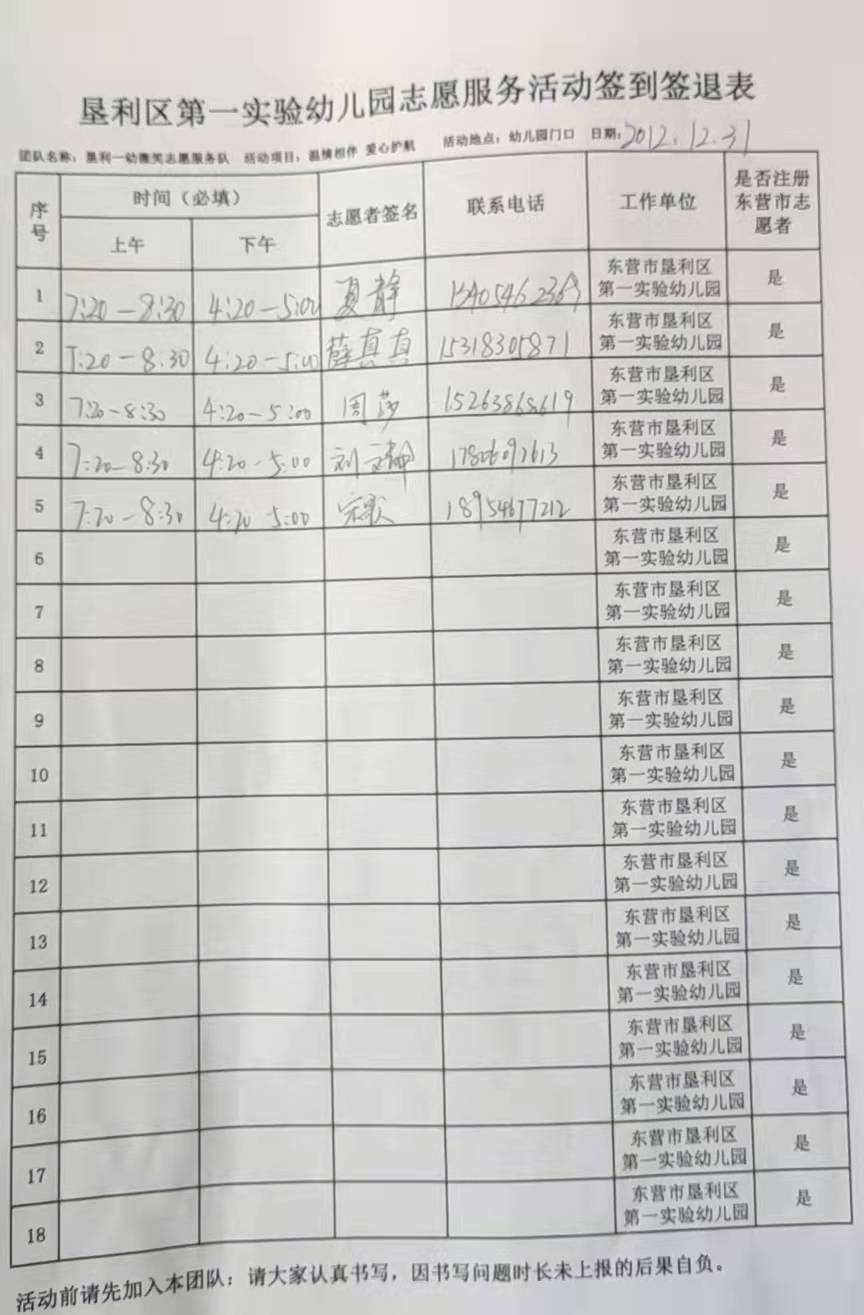 垦利区第一实验幼儿园志愿服务活动签到签退表
团队名称：垦利一幼微笑志愿服务队 活动项目：温情相伴 爱心护航 活动地点：幼儿园门口 日期：2012.12.31
序号 时间（必填） 志愿者签名 联系电话 工作单位 是否注册东营市志愿者
上午 下午
1 7:20-8:30 4:20-5:00 夏静 东营市垦利区第一实验幼儿园 是
2 7:20-8:30 4:20-5:00 薛真真 15318305871 东营市垦利区第一实验幼儿园 是
3 7:20-8:30 4:20-5:00 周莎 15263868619 东营市垦利区第一实验幼儿园 是
4 7:20-8:30 4:20-5:00 刘文静 17806092613 东营市垦利区第一实验幼儿园 是
5 7:20-8:30 4:20-5:00 18954677212 东营市垦利区第一实验幼儿园 是
6 东营市垦利区第一实验幼儿园 是
7 东营市垦利区第一实验幼儿园 是
8 东营市垦利区第一实验幼儿园 是
9 东营市垦利区第一实验幼儿园 是
10 东营市垦利区第一实验幼儿园 是
11 东营市垦利区第一实验幼儿园 是
12 东营市垦利区第一实验幼儿园 是
13 东营市垦利区第一实验幼儿园 是
14 东营市垦利区第一实验幼儿园 是
15 东营市垦利区第一实验幼儿园 是
16 东营市垦利区第一实验幼儿园 是
17 东营市垦利区第一实验幼儿园 是
18 东营市垦利区第一实验幼儿园 是
活动前请先加入本团队：请大家认真书写，因书写问题时长未上报的后果自负。